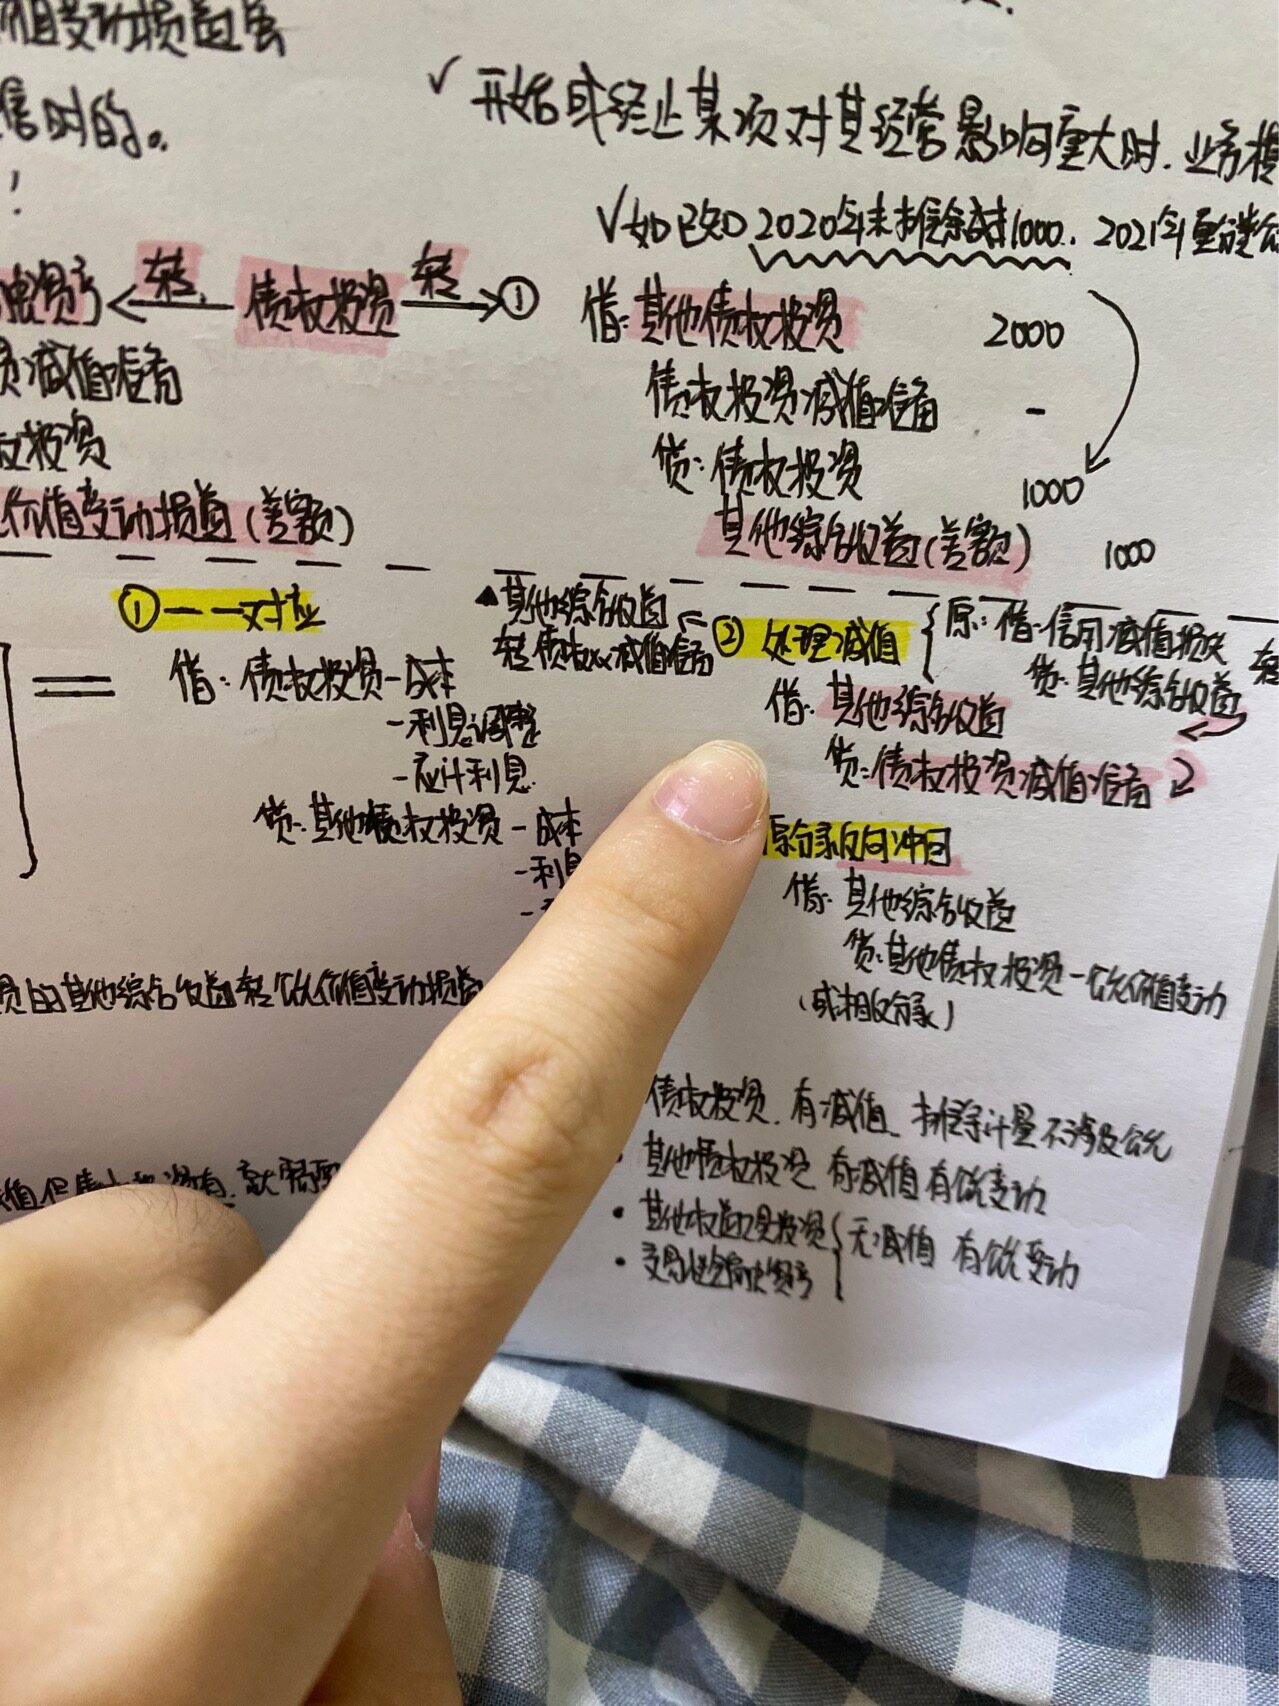 价值变动损益
售时的。
！
✓ 开始或终止某项对其经营影响重大时.业务模
✓如已知2020年末摊余成本1000. 2021年重分类
转 债权投资 转 ①
借:其他债权投资 2000
减值准备
债权投资减值准备 -
权投资
贷:债权投资 1000
价值变动损益(差额)
其他综合收益(差额) 1000
①一一对应
借:债权投资-成本
-利息调整
-应计利息
贷:其他债权投资-成本
-利息
▲其他综合收益
转债权xx减值准备
②处理减值
原:借:信用减值损失
贷:其他综合收益
转
借:其他综合收益
贷:债权投资减值准备
原分录反向冲回
借:其他综合收益
贷:其他债权投资-公允价值变动
(或相反分录)
的其他综合收益转公允价值变动损益
就需要
债权投资.有减值.摊余计量不涉及公允
其他债权投资 有减值 有公允变动
·其他权益工具投资
·交易性金融资产
无减值 有公允变动